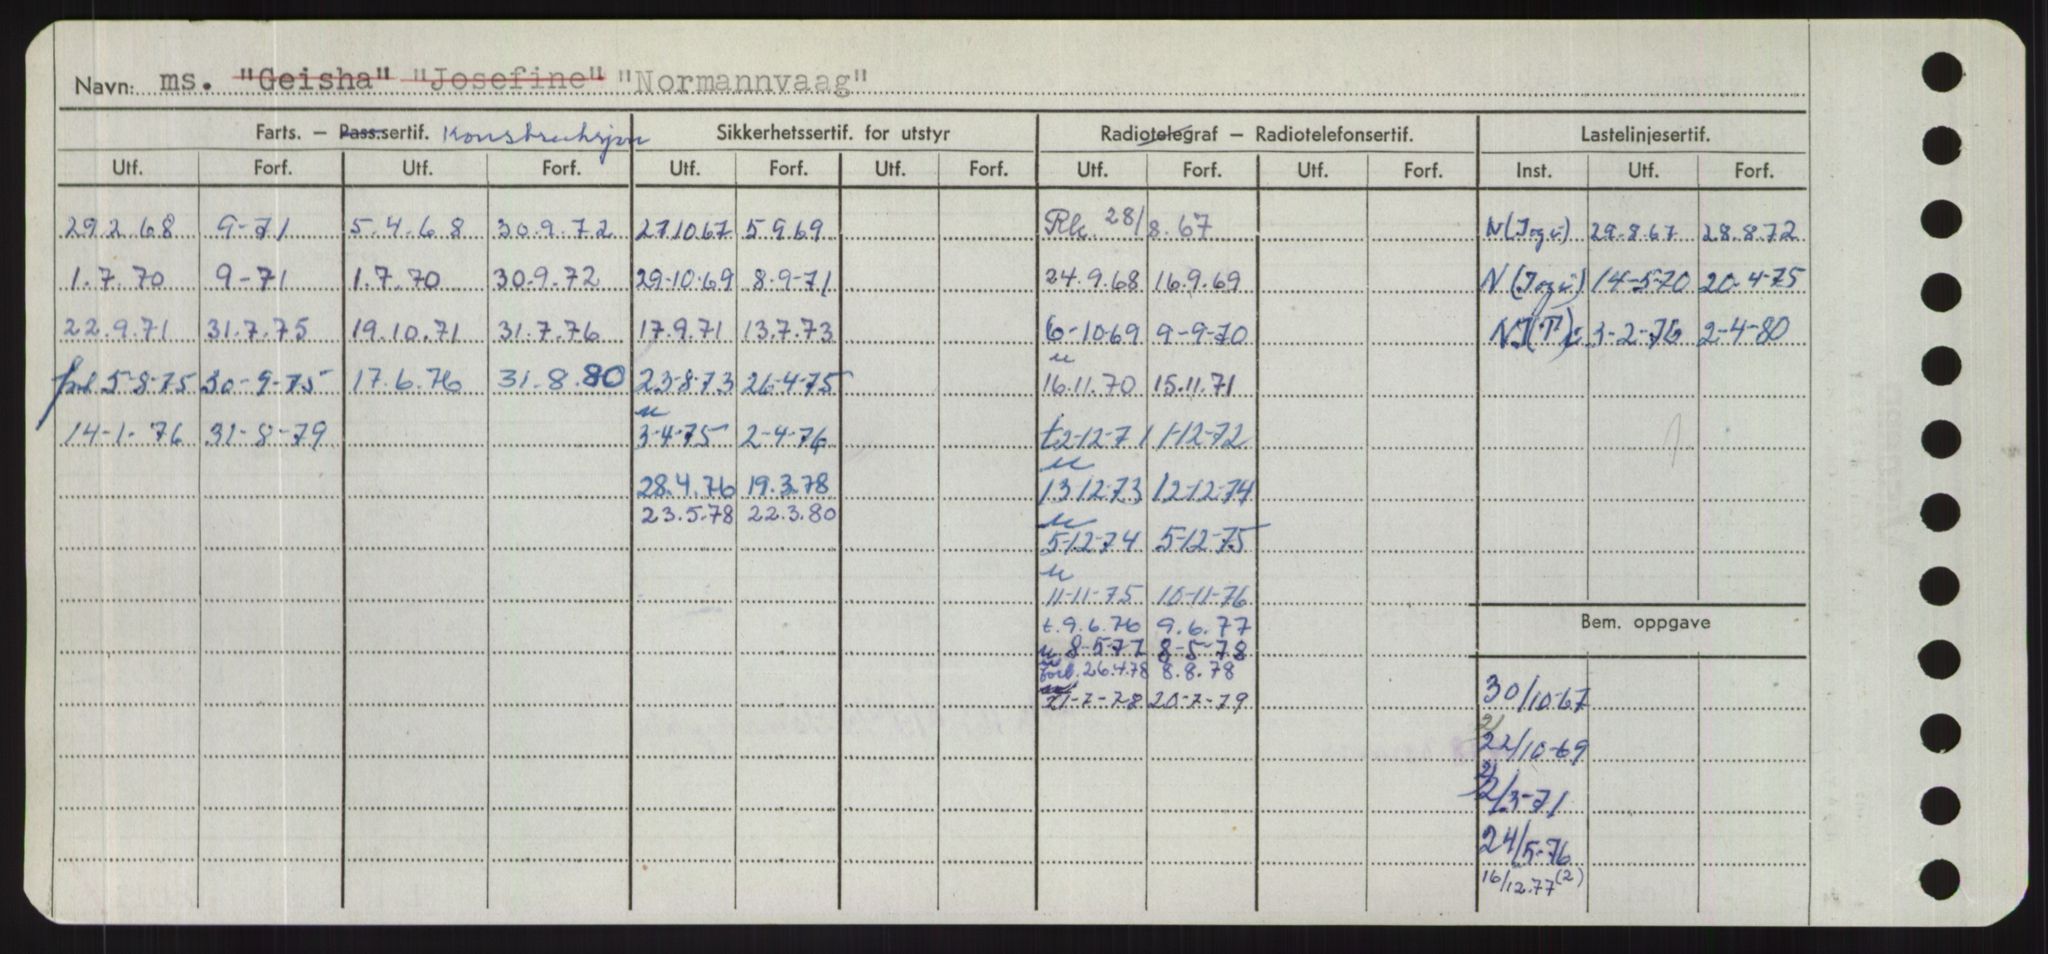 Navn: ms. "Geisha" "Josefine" "Normannvaag"
Farts. — Pass.sertif. Konstruksjon Sikkerhetssertif. for utstyr Radiotelegraf — Radiotelefonsertif. Lastelinjesertif.
Utf. Forf. Utf. Forf. Utf. Forf. Utf. Forf. Utf. Forf. Utf. Forf. Inst. Utf. Forf.
29.2.68 9-71 5.4.68 30.9.72 27.10.67 5.9.69 28/8.67 29.8.67 28.8.72
1.7.70 9-71 1.7.70 30.9.72 29-10-69 8-9-71 24.9.68 16.9.69 14-5-70 20-4-75
22.9.71 31.7.75 19.10.71 31.7.76 17.9.71 13.7.73 6-10-69 9-9-70 3-2-76 2-4-80
forl. 5-8-75 30-9-75 17.6.76 31.8.80 23-8-73 26-4-75 16.11.70 15.11.71
14-1-76 31-8-79 3-4-75 2-4-76 t2-12-71 1-12-72
28.4.76 19.3.78 13-12-73 12-12-74
23.5.78 22.3.80
5-12-74 5-12-75
11-11-75 10-11-76
t.9.6.76 9.6.77
Bem. oppgave
8-5-77 8-5-78
forl. 26.4.78 8.8.78
21-7-78 20-7-79
30/10-67
22/10-69
2/3-71
24/5-76
16/12.77 (2)